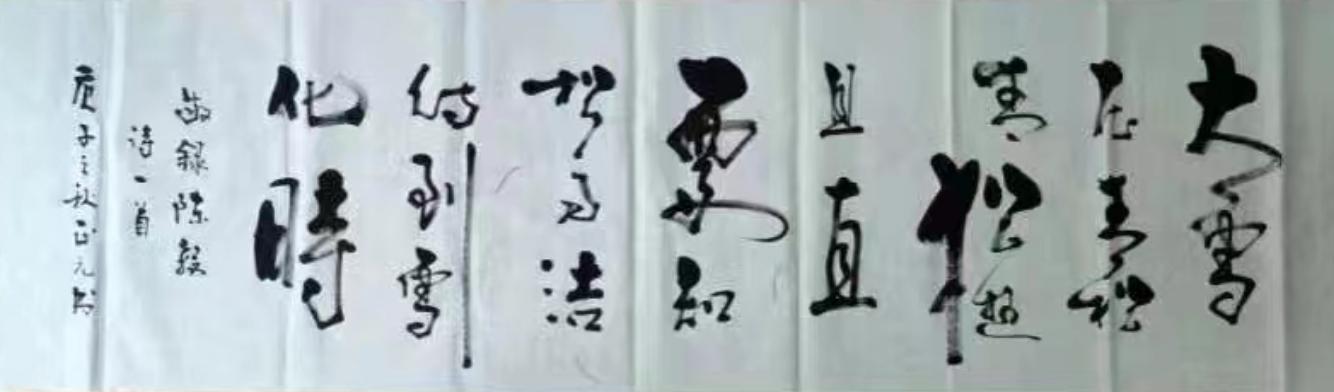 大雪
压青松
青松挺
且直
要知
松高洁
待到雪
化時
敬録陈毅
诗一首
庚子之秋正元书